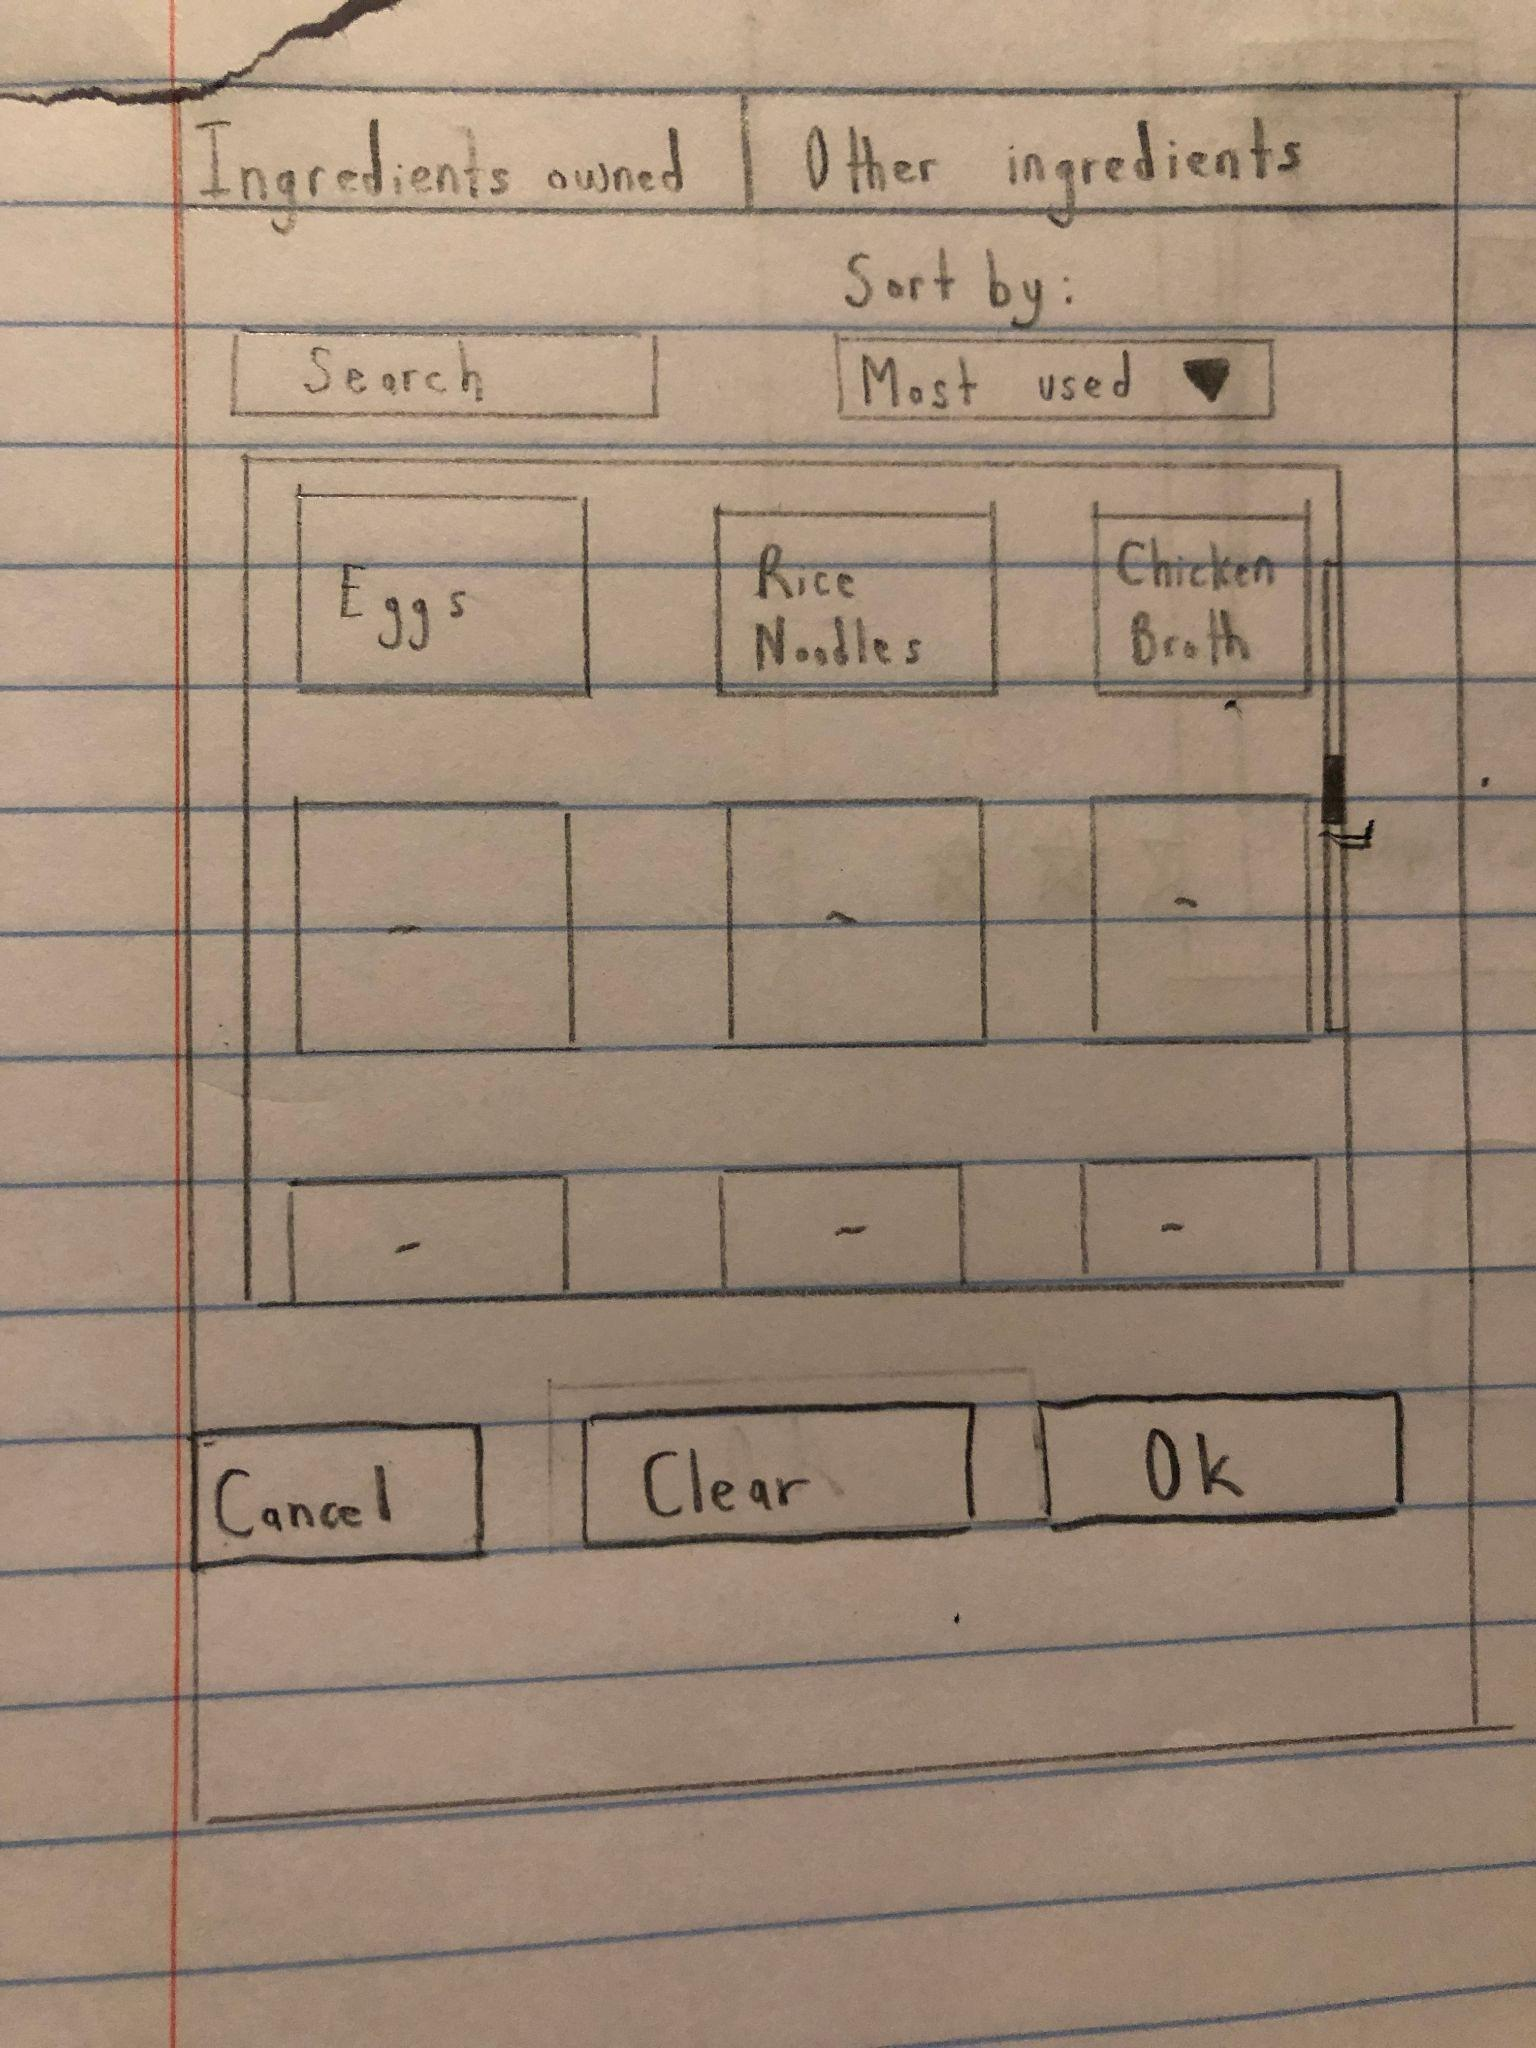 Ingredients owned | Other ingredients
Sort by:
Search
Most used
Eggs
Rice
Noodles
Chicken
Broth
~ ~ ~
~ ~ ~
Cancel
Clear
Ok